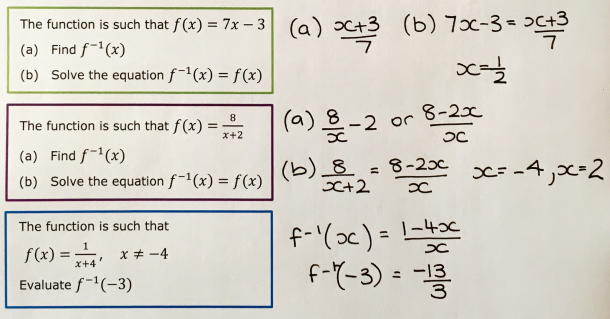 The function is such that f(x) = 7x − 3
(a) Find f⁻¹(x)
(b) Solve the equation f⁻¹(x) = f(x)
(a) x+3/7 (b) 7x-3 = x+3/7
x = 1/2
The function is such that f(x) = 8/x+2
(a) Find f⁻¹(x)
(b) Solve the equation f⁻¹(x) = f(x)
(a) 8/x - 2 or 8-2x/x
(b) 8/x+2 = 8-2x/x x = -4, x = 2
The function is such that
f(x) = 1/x+4, x ≠ −4
Evaluate f⁻¹(−3)
f-¹(x) = 1-4x/x
f-¹(-3) = -13/3